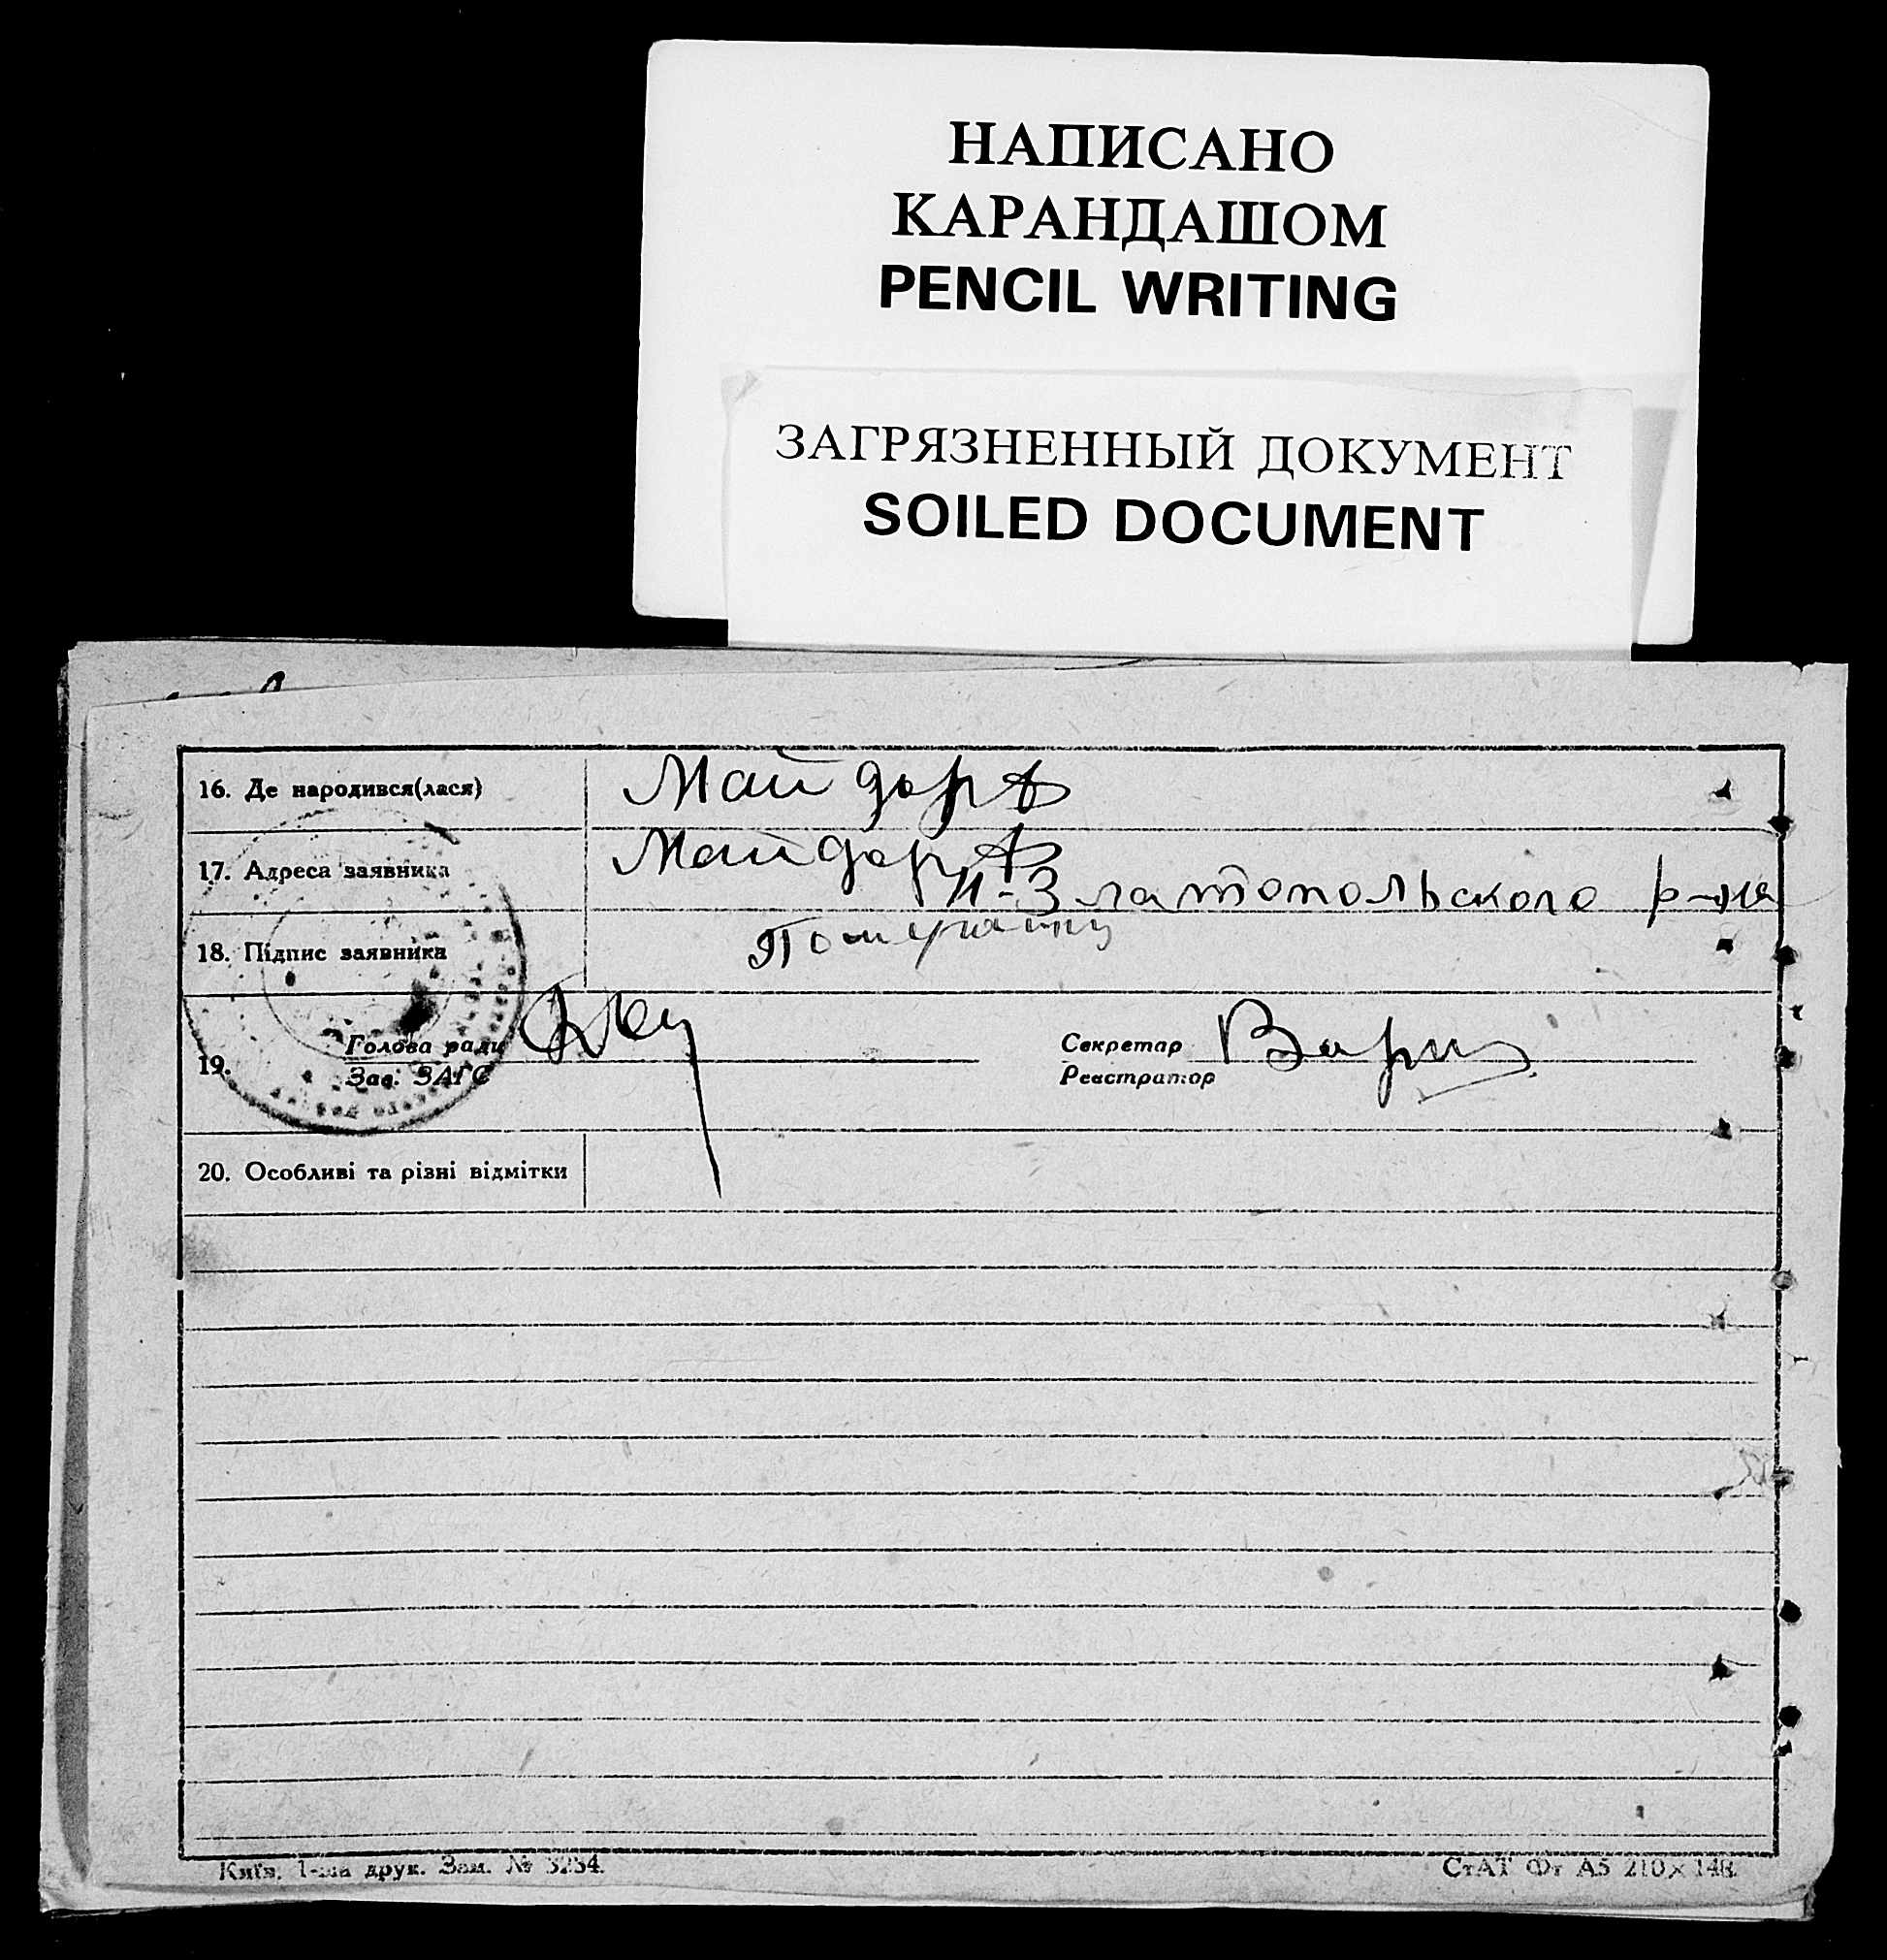 НАПИСАНО
КАРАНДАШОМ
PENCIL WRITING
ЗАГРЯЗНЕННЫЙ ДОКУМЕНТ
SOILED DOCUMENT
16. Де народився(лася)
17. Адреса заявника
Н-Златопольского р-на
18. Підпис заявника
19. Голова ради Секретар
Зав. ЗАГС Реєстратор
20. Особливі та різні відмітки
Київ. 1-ша друк. Зам. № 3254. СтАТ Фт А5 210×148.